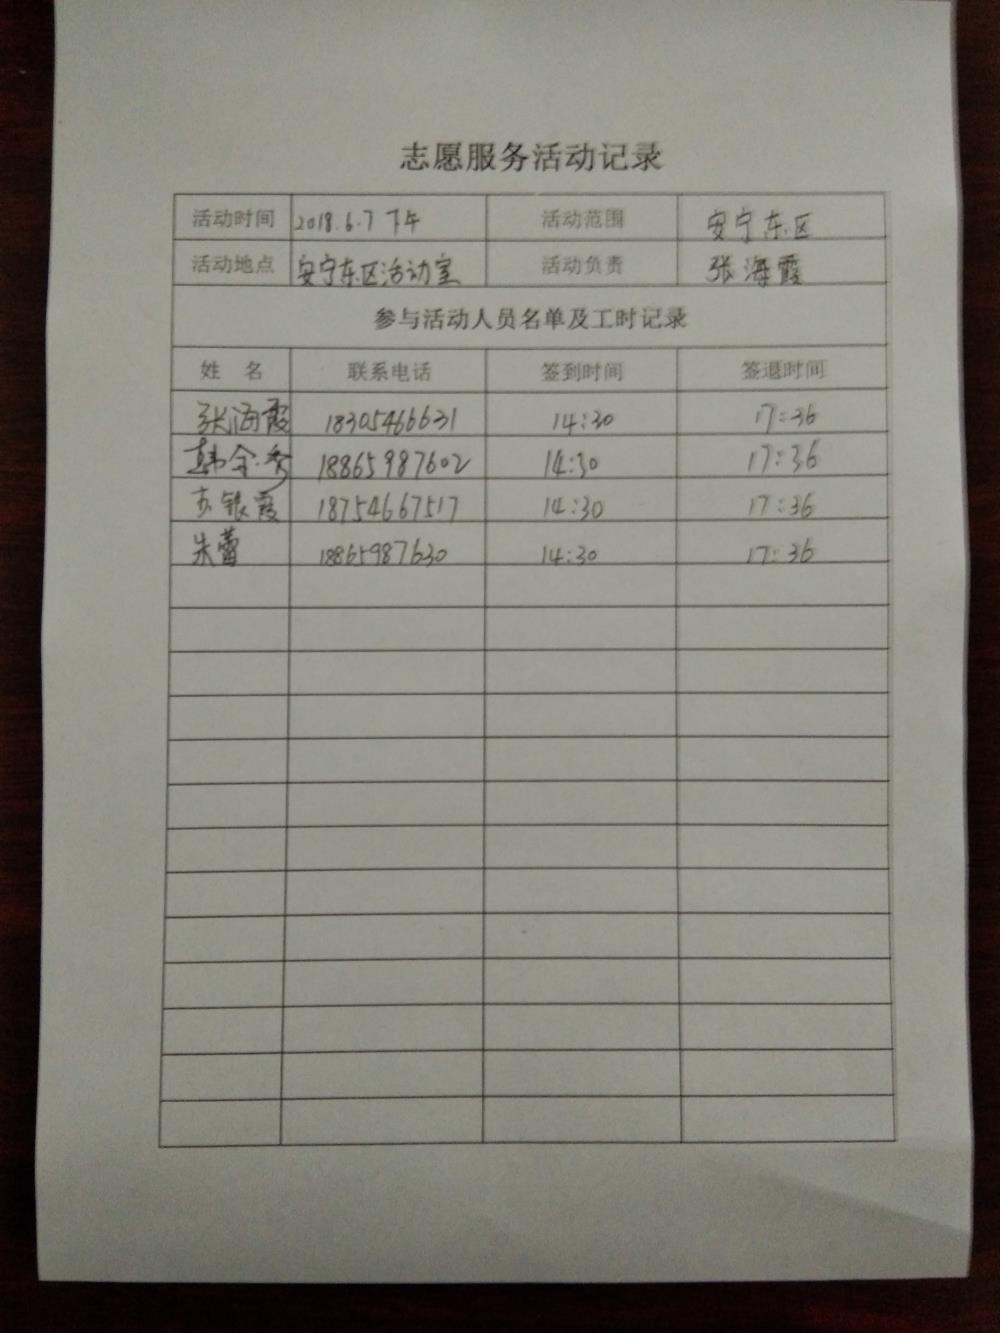 志愿服务活动记录
活动时间 2018.6.7 下午 活动范围 安宁东区
活动地点 安宁东区活动室 活动负责 张海霞
参与活动人员名单及工时记录
姓 名 联系电话 签到时间 签退时间
张海霞 18305466631 14:30 17:36
韩金秀 18865987602 14:30 17:36
苏银霞 18754667517 14:30 17:36
朱蕾 18865987630 14:30 17:36